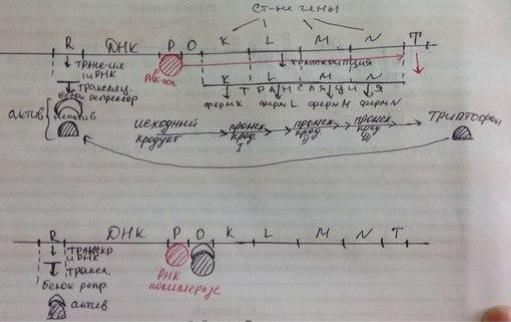 ст-ые гены
R ДНК P O K L M N T
транс-ция
иРНК
транскрипция
РНК-пол
трансляц.
К ТРАНСЛЯЦИЯ
белок репрессор
ферм К ферм L ферм M ферм N
актив
неактив
исходный продукт
промеж. прод I
промеж. прод II
промеж. прод III
Триптофан
R ДНК P O K L M N T
транскр
иРНК
трансл.
РНК
полимераза
белок репр.
актив